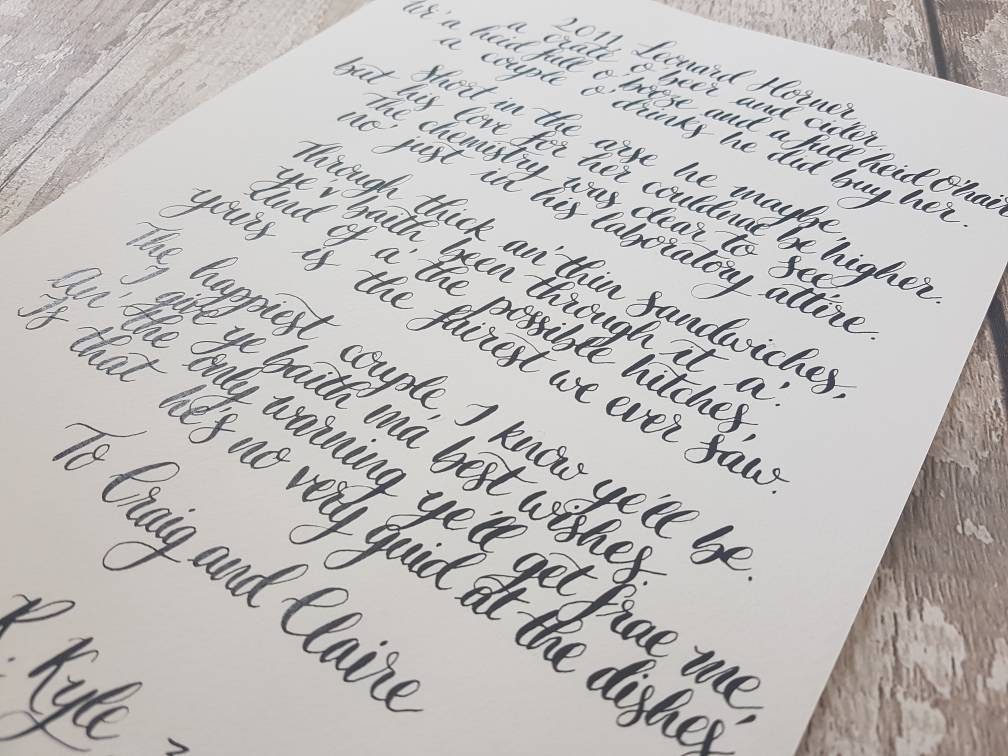 2011, Leonard Horner,
a crate o' beer and cider.
Wi' a heid full o' booze and a full heid o' hair
a couple o' drinks he did buy her.
Short in the arse he maybe
but his love for her couldnae be higher.
The chemistry was clear to see,
no' just in his laboratory attire.
Through thick an' thin sandwiches,
ye'v baith been through it a'.
And of a' the possible hitches,
yours is the fairest we ever saw.
The happiest couple, I know ye'll be.
I give ye baith ma best wishes.
An' the only warning ye'll get frae me,
Is that he's no very guid at the dishes
To Craig and Claire
Kyle